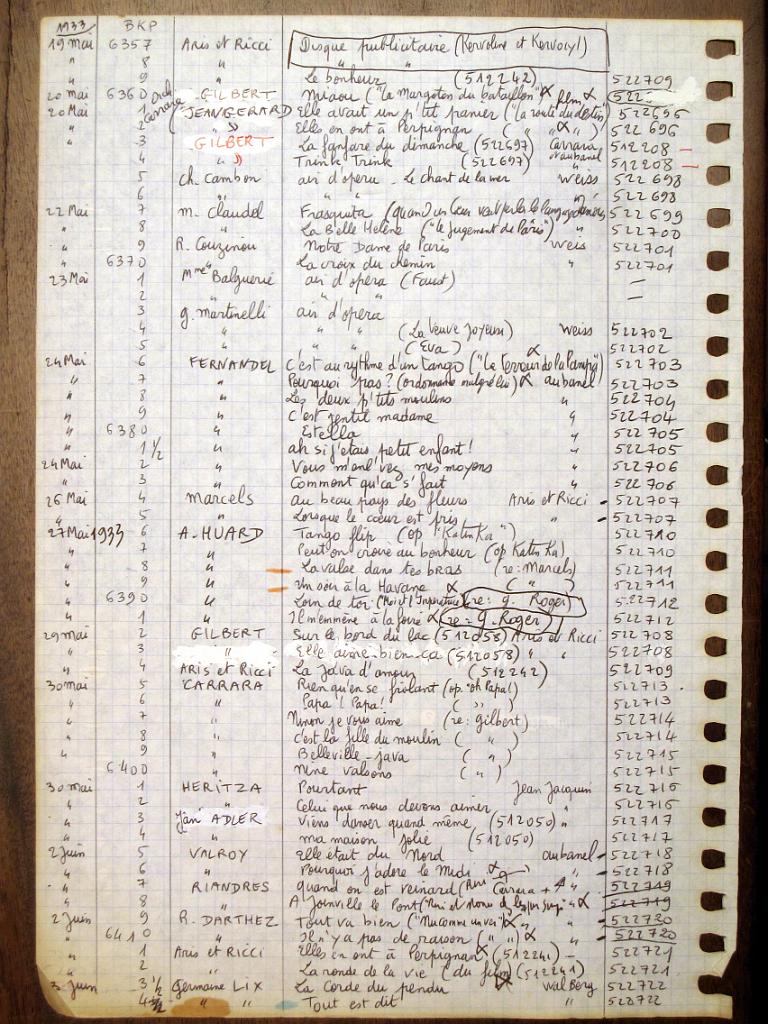 1933 BKP
19 Mai 6357 Aris et Ricci Disque publicitaire (Kervoline et Kervocyl)
" 8 " " "
" 9 Le bonheur (512242) 522709
20 Mai 6360 GILBERT Miaou ("la Margoton du bataillon") film 522
20 Mai 1 Carrara JEAN GERARD Elle avait un p'tit panier ("la route du destin") 522696
" 2 " Elles en ont à Perpignan ( " " ) 522 696
" 3 GILBERT La fanfare du dimanche (522697) Carrara 512208 –
4 " Trink Trink (522697) Aubanel 512208 –
5 Ch. Cambon air d'opera - Le chant de la mer Weiss 522 698
6 " " " " 522 698
22 Mai 7 M. Claudel Frasquita 522699
" 8 " La Belle Hélène ("le jugement de Pâris") " 522700
" 9 R. Couzinou Notre Dame de Paris Weis 522701
6370 La croix du chemin " 522701
23 Mai 1 Mme Balguerie air d'opera (Faust) –
2 " " " –
3 G. Martinelli air d'opera
4 " " " (La Veuve Joyeuse) Weiss 522702
5 " " (Eva) 522702
24 Mai 6 FERNANDEL C'est au rythme d'un tango ("la terreur de la Pampa") 522703
" 7 " Pourquoi pas? (ordonnance malgré lui) aubanel 522703
" 8 " Les deux p'tits moulins " 522704
" 9 " C'est gentil madame " 522704
" 6380 " Estella " 522705
" 1 1/2 " ah si j'etais petit enfant! " 522705
24 Mai 2 " Vous m'enl'vez mes moyens " 522706
" 3 " Comment qu'ca s'fait " 522 706
26 Mai 4 Marcels au beau pays des fleurs Aris et Ricci 522707
" 5 " Lorsque le cœur est pris " 522707
27 Mai 1933 6 A. HUARD Tango flip (op "Katinka") 522710
" 7 " Peut-on croire au bonheur (op Katinka) 522710
" 8 " La valse dans tes bras (re: Marcels) 522711
" 9 " Un soir à la Havane ( " ) 522711
" 6390 " Loin de toi (Moi et l'Impératrice) (re: G. Roger) 522712
" 1 " Il m'emmène à la foire (re: G. Roger) 522712
29 mai 2 GILBERT Sur le bord du lac (512058) Aris et Ricci 522708
" 3 " Elle aime bien ça (512058) " 522708
" 4 ARIS et RICCI La Java d'amour (512242) 522709
30 mai 5 CARRARA Rien qu'en se frolant (op. "oh Papa!) 522713
" 6 " Papa! Papa! ( " ) 522713
" 7 " Ninon je vous aime (re: Gilbert) 522714
" 8 " C'est la fille du moulin ( " ) 522714
" 9 " Belleville-java ( " ) 522715
6400 " Nine valsons ( " ) 522715
30 mai 1 HERITZA Pourtant Jean Jacquin 522716
" 2 " Celui que nous devons aimer " 522716
" 3 Jan ADLER Viens danser quand même (512050) " 522717
" 4 " Ma maison jolie (512050) 522717
2 Juin 5 VALROY Elle était du Nord aubanel 522718
" 6 " Pourquoi j'adore le Midi " 522718
" 7 RIANDRES quand on est veinard Carrara 522719
" 8 " A Joinville le Pont " 522719
2 Juin 9 R. DARTHEZ Tout va bien " 522720
" 6410 " Il n'y a pas de raison ( " ) " 522720
" 1 Aris et Ricci Elles en ont à Perpignan (512241) 522721
" 2 " La ronde de la vie (du film) (512241) 522721
3 Juin 3 1/2 Germaine LIX La Corde du pendu Walberg 522722
4 1/2 " " Tout est dit " 522722